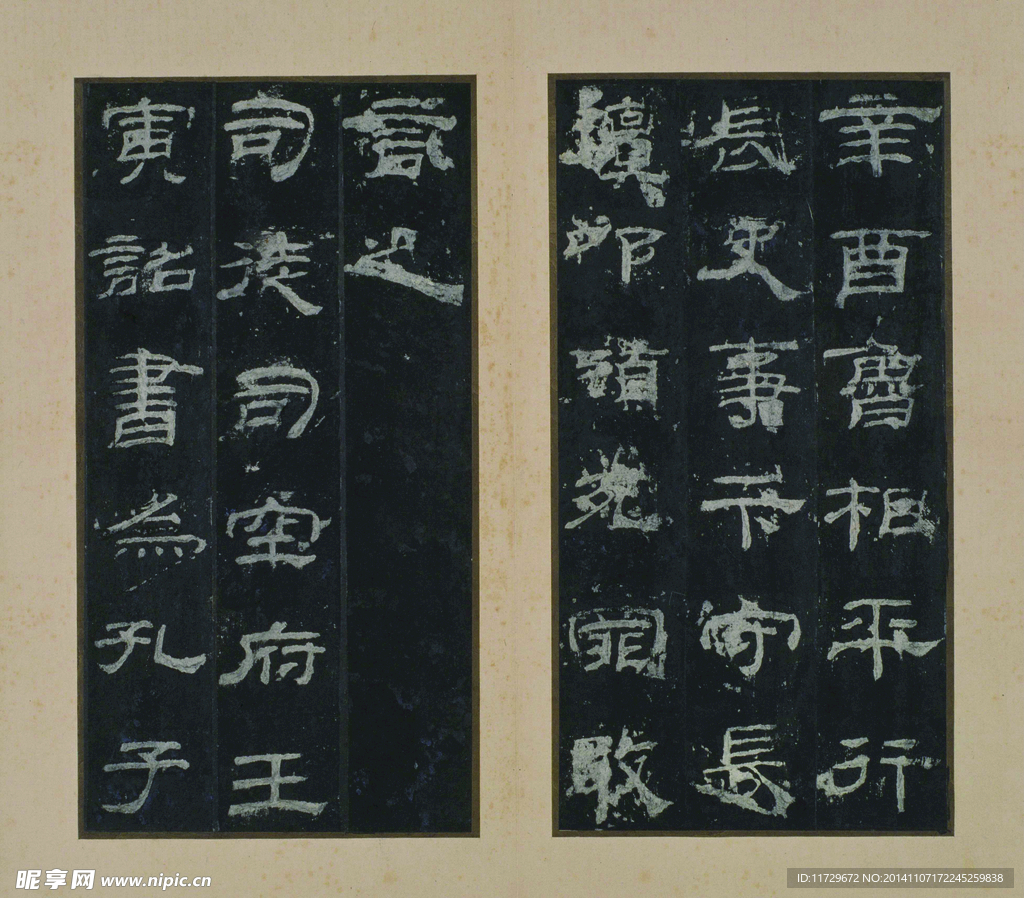 辛酉魯相平行
長史事卞守長
擅叩頭死罪敢
言之
司徒司空府壬
寅詔書為孔子
昵享网 www.nipic.cn
ID:11729672 NO:20141107172245259838